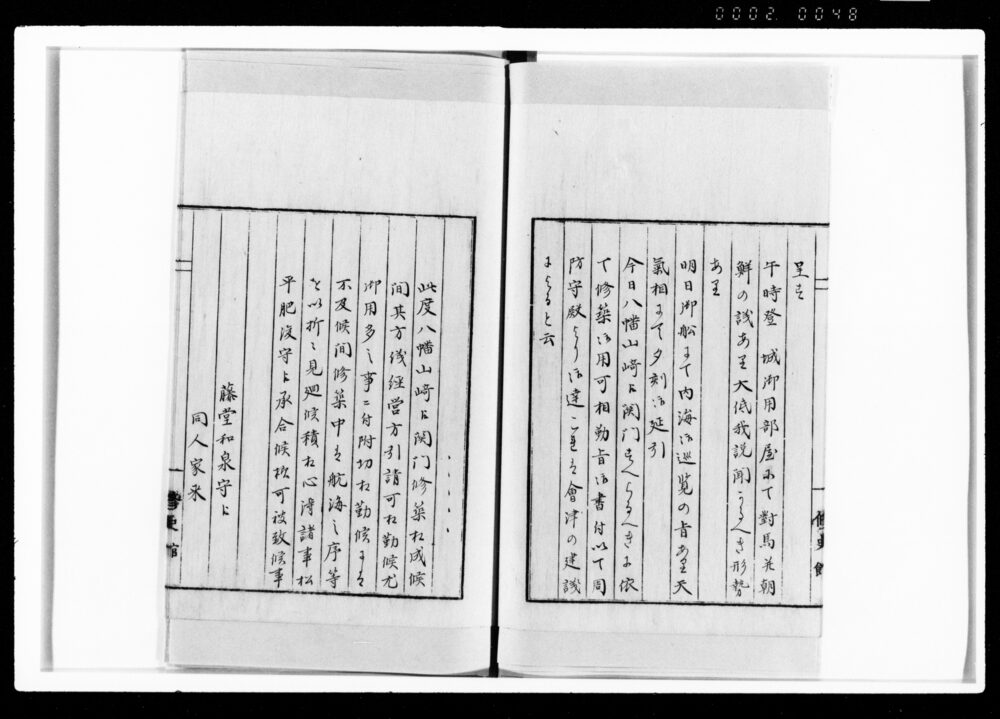 0002 0048
呈す
午時登　城御用部屋にて對馬并朝
鮮の議あり大低我説聞うるへき形勢
あり
明日御船にて内海御巡覧の旨あり天
氣相にて夕刻御延引
今日八幡山崎に関門すへらるへきに依
て修築御用可相勤旨御書付以て周
防守殿より御達これは會津の建議
によると云
此度八幡山崎に関門修築相成候
間其方儀経営方引請可相勤候尤
御用多之事ニ付附切相勤候には
不及候間修築中は航海之序等
を以折々見廻候積相心得諸事松
平肥後守に承合候様可被致候事
藤堂和泉守に
同人家来
修史館